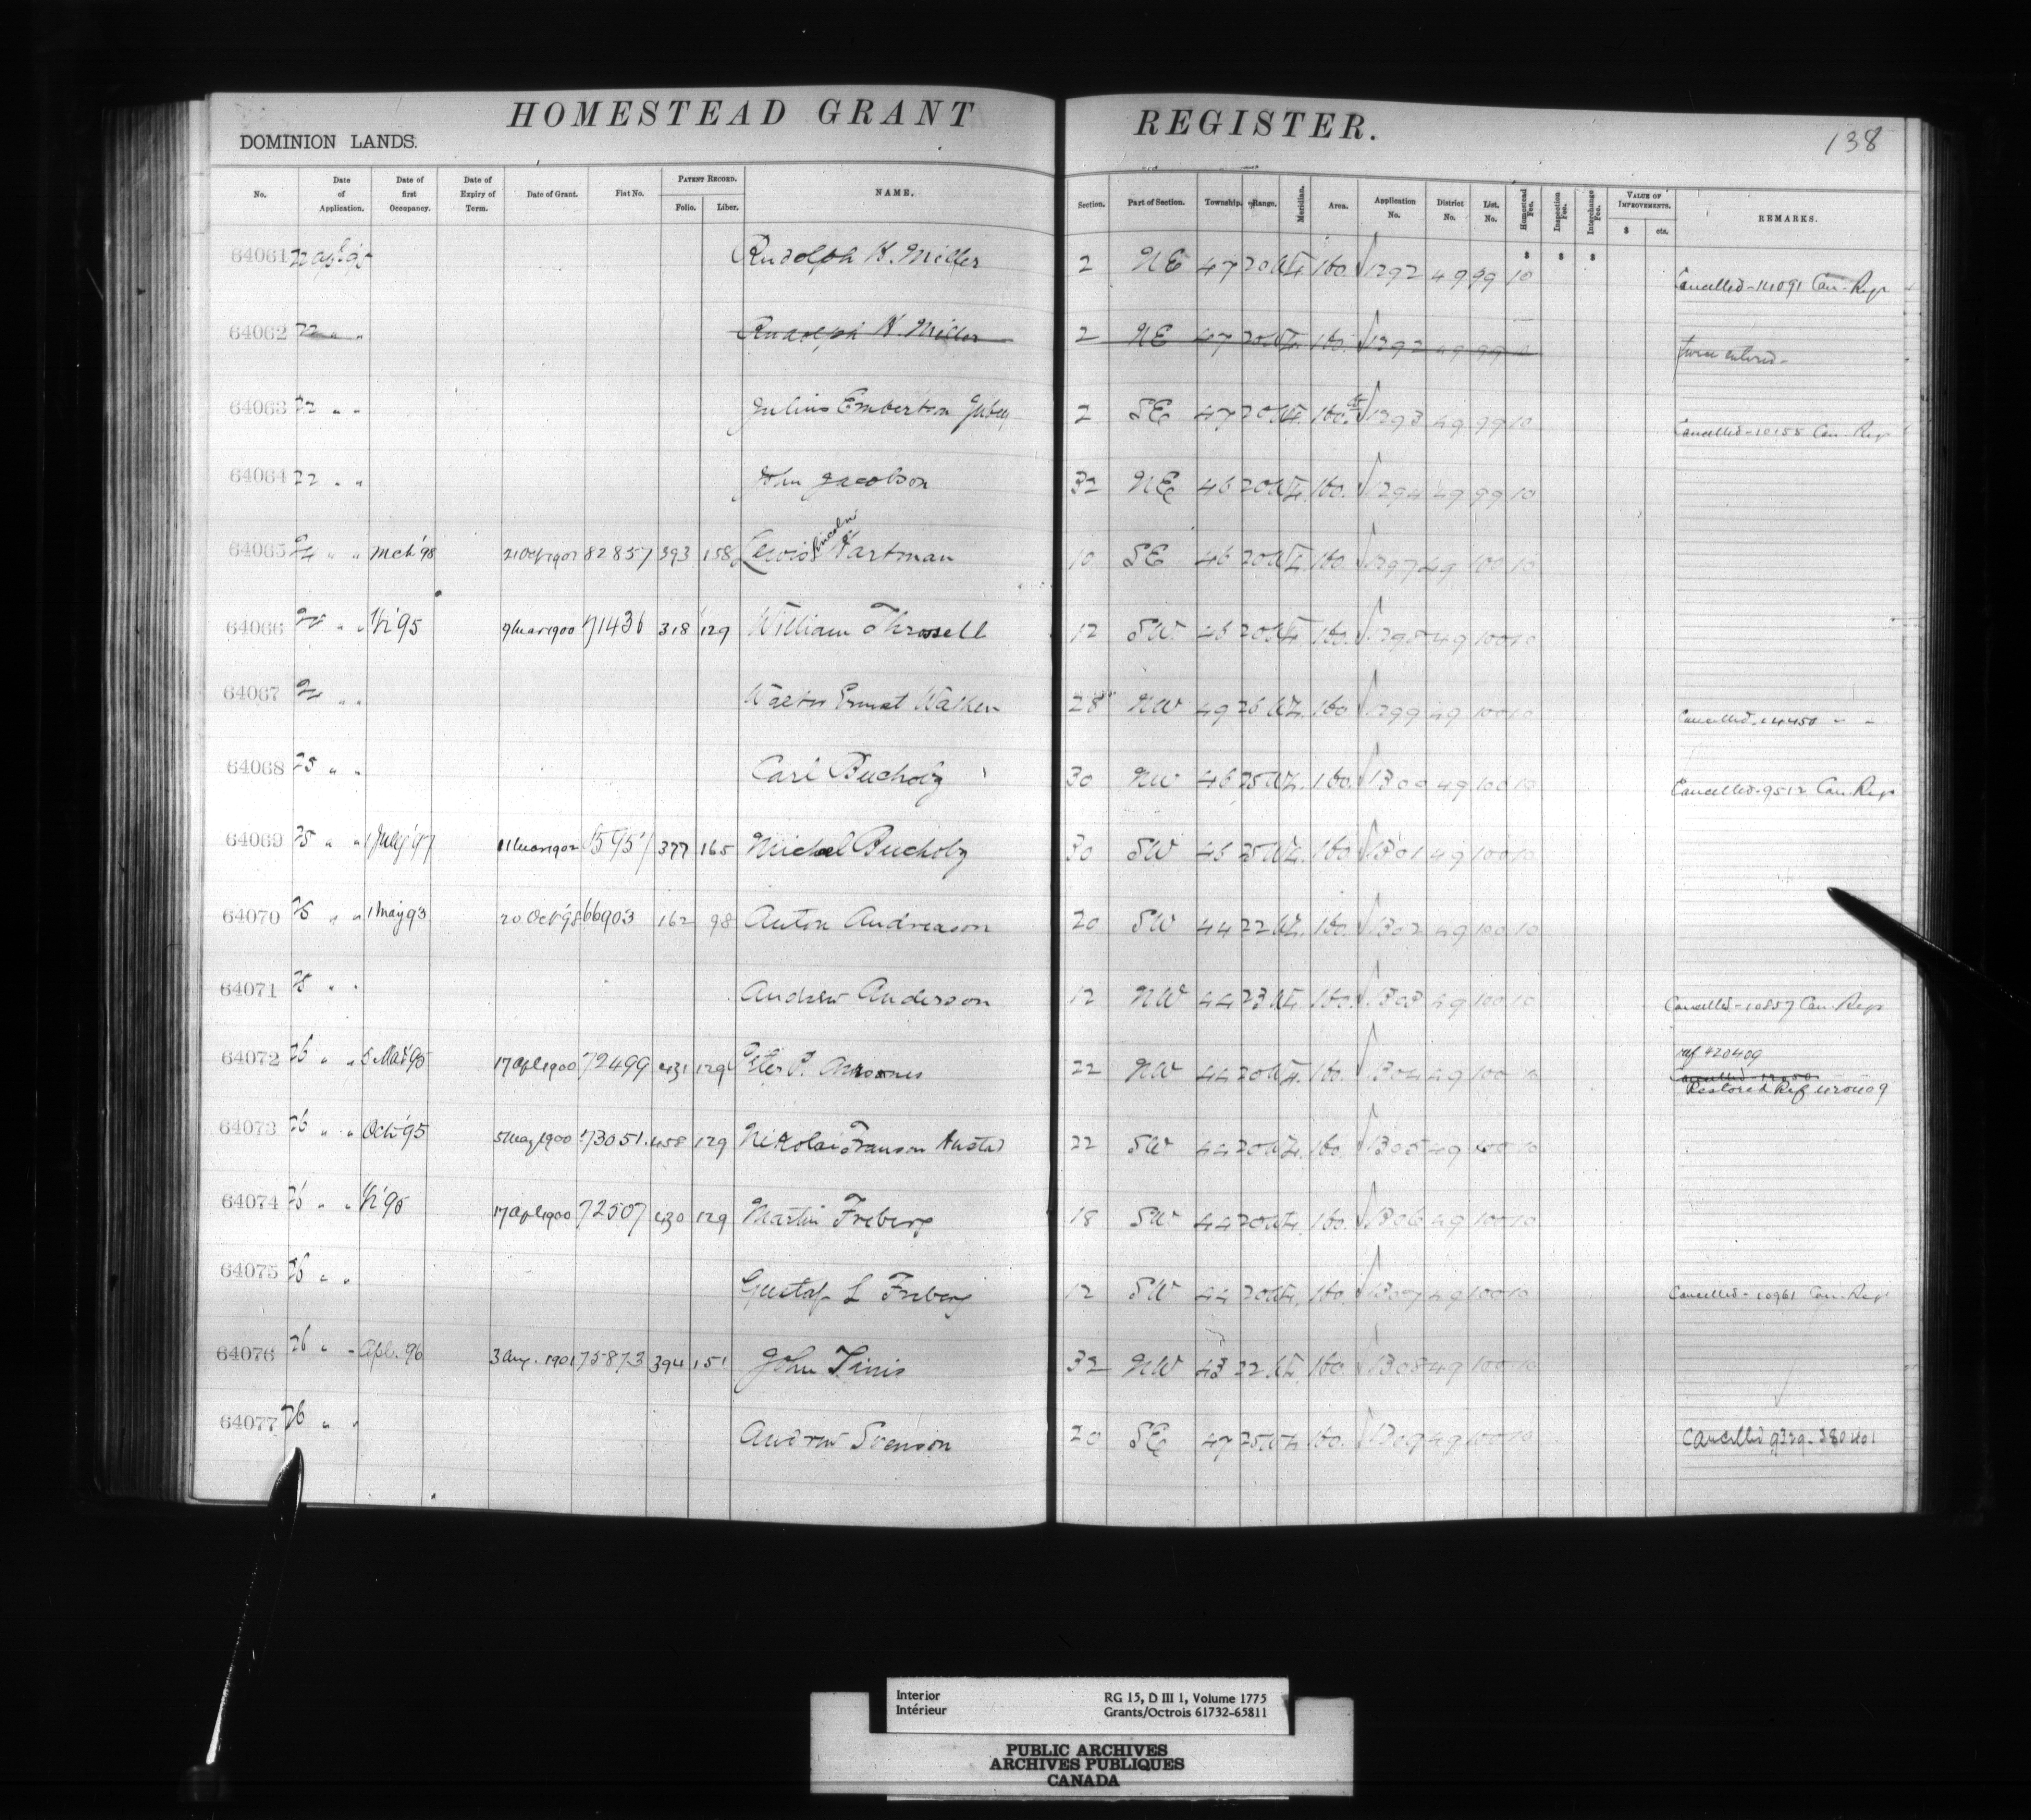 HOMESTEAD GRANT REGISTER.
138
DOMINION LANDS.
No. Date of Application. Date of first Occupancy. Date of Expiry of Term. Date of Grant. Fiat No. PATENT RECORD. Folio. Liber. NAME. Section. Part of Section. Township. Range. Meridian. Area. Application No. District No. List. No. Homestead Fee. Inspection Fee. Interchange Fee. VALUE OF IMPROVEMENTS. $ cts. REMARKS.
$ $ $
64061 22 Apl '95 Rudolph K. Miller 2 NE 47 20 W4 160 1292 49 99 10 Cancelled - 14091 Can. Regr
64062 22 " " Rudolph K. Miller 2 NE 47 20 W4 160 1292 49 99 10 twice entered -
64063 22 " " Julius Emberton 2 SE 47 20 W4 160. 1293 49 99 10 Cancelled - 10155 Can. Regr
64064 22 " " John Jacobson 32 NE 46 20 W4 160. 1294 49 99 10
64065 24 " " Mch '98 21 Oct 1907 82857 393 158 Lewis Lincoln Hartman 10 SE 46 20 W4 160. 1297 49 100 10
64066 24 " " '95 9 Mar 1900 71436 318 129 William Thrasell 12 SW 46 20 W4 160. 1298 49 100 10
64067 24 " " Walter Ernest Walker 28 NW 49 26 W4. 160 1299 49 100 10 Cancelled. 14450 " "
64068 25 " " Carl Bucholz 30 NW 46 25 W4. 160. 1300 49 100 10 Cancelled. 9512 Can. Regr
64069 25 " " 1 July '97 11 Mar 1902 377 165 Michael Bucholz 30 SW 46 25 W4. 160 1301 49 100 10
64070 25 " " 1 May 93 20 Oct '98 66903 162 98 Anton Andreason 20 SW 44 22 W4. 160. 1302 49 100 10
64071 25 " " Andrew Anderson 12 NW 44 23 W4. 160. 1303 49 100 10 Cancelled - 10857 Can. Regr
64072 26 " " 5 '95 17 Apl 1900 72499 431 129 Peter P. 22 NW 44 20 W4. 160. 1304 49 100 10 ref 420409
Cancelled
Restored Ref 420409
64073 26 " " Oct '95 5 May 1900 73051. 458 129 Nikolai Franson Austad 22 SW 44 20 W4. 160. 1305 49 100 10
64074 26 " " '95 17 Apl 1900 72507 430 129 Martin Freberg 18 SW 44 20 W4. 160. 1306 49 100 10
64075 26 " " Gustaf L Freberg 12 SW 44 20 W4. 160. 1307 49 100 10 Cancelled - 10961 Can. Regr
64076 26 " " Apl. 96 3 Aug. 1901 75873 394 151 John 32 NW 43 22 W4. 160. 1308 49 100 10
64077 26 " " Andrew Svenson 20 SE 47 25 W4 160. 1309 49 100 10 Cancelled 9329 - 380401
Interior RG 15, D III 1, Volume 1775
Intérieur Grants/Octrois 61732-65811
PUBLIC ARCHIVES
ARCHIVES PUBLIQUES
CANADA